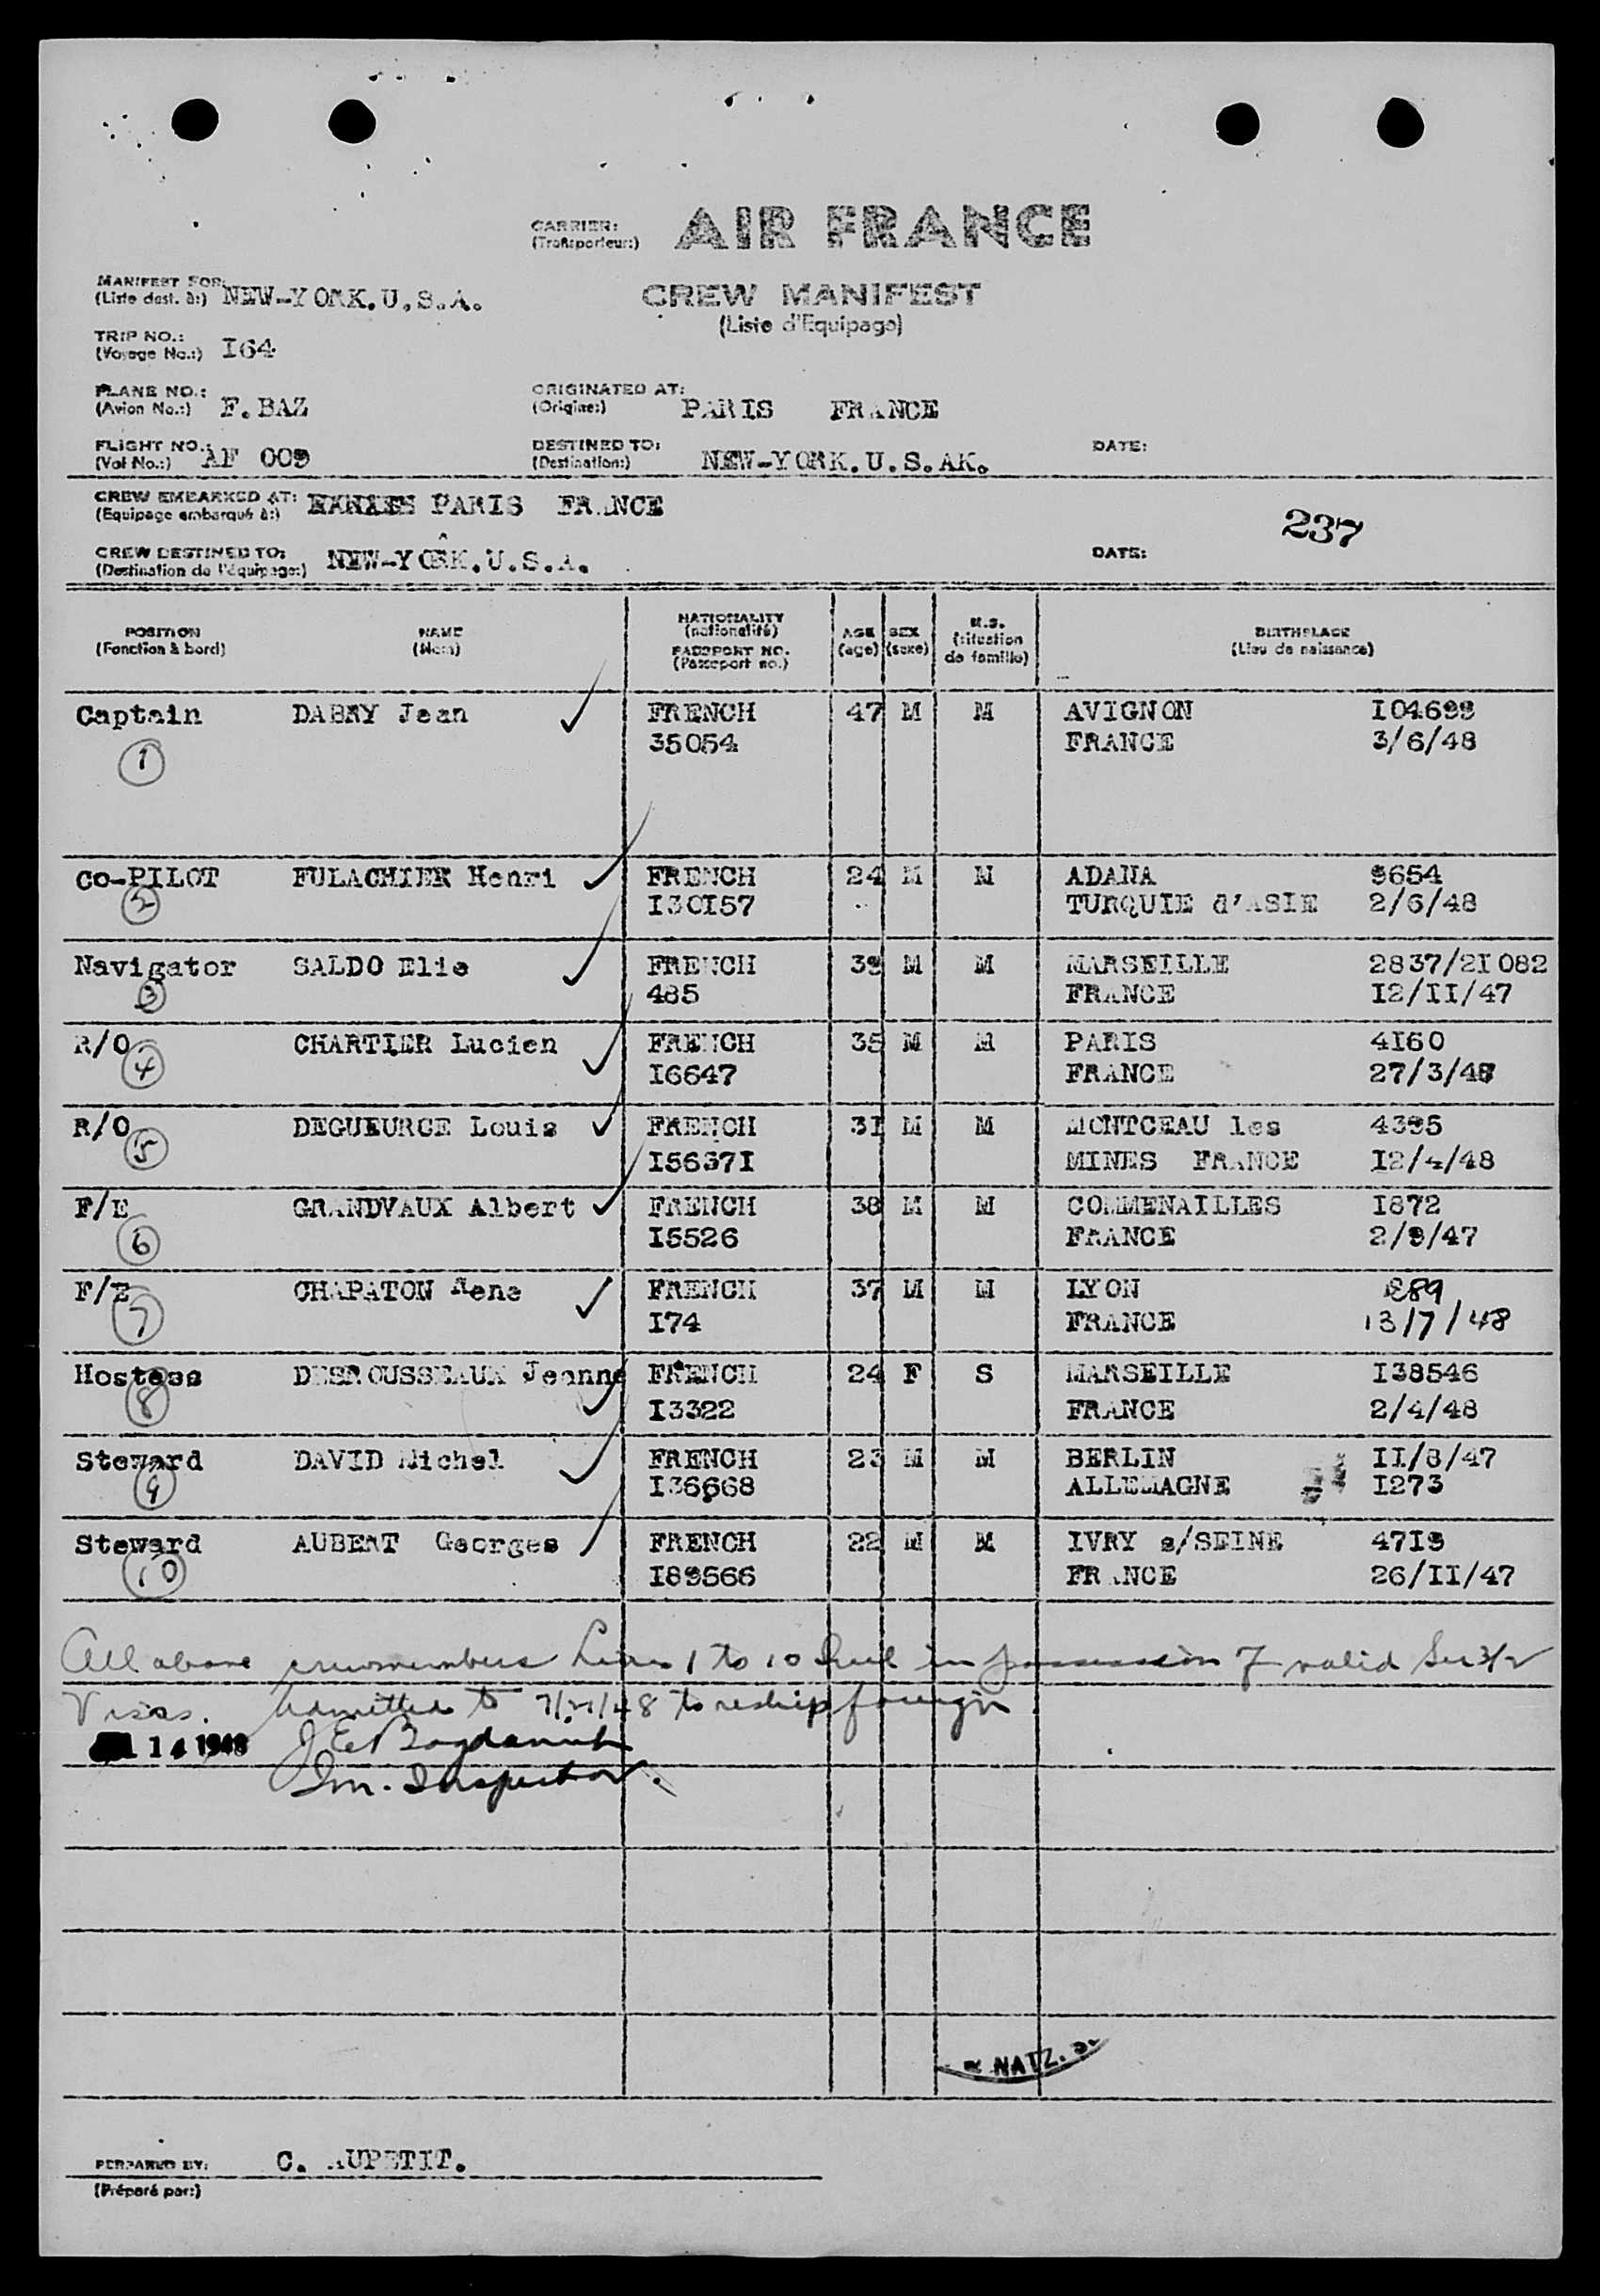 CARRIER: AIR FRANCE
(Transporteur:)
MANIFEST FOR: NEW-YORK.U.S.A.
(Liste dest. à:)
CREW MANIFEST
(Liste d'Equipage)
TRIP NO.: I64
(Voyage No.:)
PLANE NO.: F.BAZ
(Avion No.:)
ORIGINATED AT: PARIS FRANCE
(Origine:)
FLIGHT NO.: AF 009
(Vol No.:)
DESTINED TO: NEW-YORK.U.S.AK.
(Destination:)
DATE:
CREW EMBARKED AT: PARIS FRANCE
(Equipage embarqué à:)
237
CREW DESTINED TO: NEW-YORK.U.S.A.
(Destination de l'équipage:)
DATE:
POSITION NAME NATIONALITY AGE SEX M.S. BIRTHPLACE
(Fonction à bord) (Nom) (nationalité) (age) (sexe) (situation de famille) (Lieu de naissance)
PASSPORT NO.
(Passeport no.)
Captain DABRY Jean FRENCH 47 M M AVIGNON I04699
1 35054 FRANCE 3/6/48
Co-PILOT FULACHIER Henri FRENCH 24 M M ADANA 9654
2 I30I57 TURQUIE d'ASIE 2/6/48
Navigator SALDO Elie FRENCH 39 M M MARSEILLE 2837/2I082
3 485 FRANCE I2/II/47
R/O CHARTIER Lucien FRENCH 35 M M PARIS 4I60
4 I6647 FRANCE 27/3/48
R/O DEGUEURCE Louis FRENCH 3I M M MONTCEAU les 4395
5 I5637I MINES FRANCE I2/4/48
F/E GRANDVAUX Albert FRENCH 38 M M COMMENAILLES I872
6 I5526 FRANCE 2/9/47
F/E CHAPATON Rene FRENCH 37 M M LYON 889
7 I74 FRANCE 13/7/48
Hostess DESROUSSEAUX Jeanne FRENCH 24 F S MARSEILLE I38546
8 I3322 FRANCE 2/4/48
Steward DAVID Michel FRENCH 23 M M BERLIN II/8/47
9 I36668 ALLEMAGNE I273
Steward AUBERT Georges FRENCH 22 M M IVRY s/SEINE 47I9
10 I89566 FRANCE 26/II/47
All above crewmembers Lines 1 to 10 Incl in possession of valid Sec 3/2
Visas. Admitted to 7/21/48 to reship foreign.
14 1948
Im. Inspector.
NATZ. S.
PREPARED BY: C. AUPETIT.
(Préparé par:)